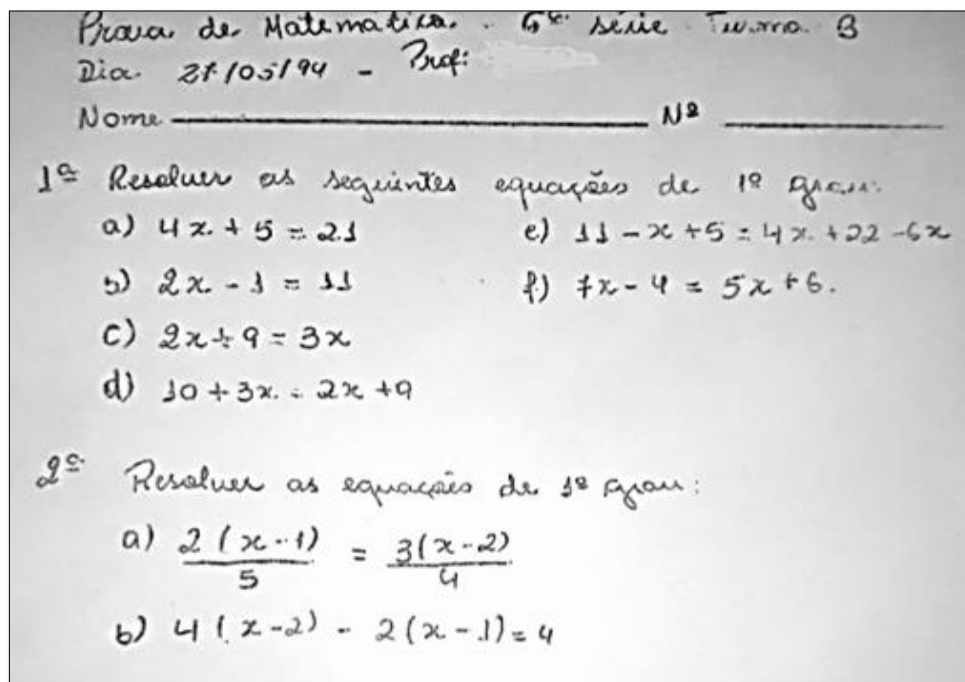 Prova de Matemática. 6ª série Turma B
Dia 27/05/94 - Prof:
Nome Nº
1ª Resolver as seguintes equações de 1º grau:
a) 4x + 5 = 21
b) 2x - 1 = 11
c) 2x + 9 = 3x
d) 10 + 3x = 2x + 9
e) 11 - x + 5 = 4x + 22 - 6x
f) 7x - 4 = 5x + 6.
2ª Resolver as equações de 1º grau:
a) 2(x - 1)/5 = 3(x - 2)/4
b) 4(x - 2) - 2(x - 1) = 4